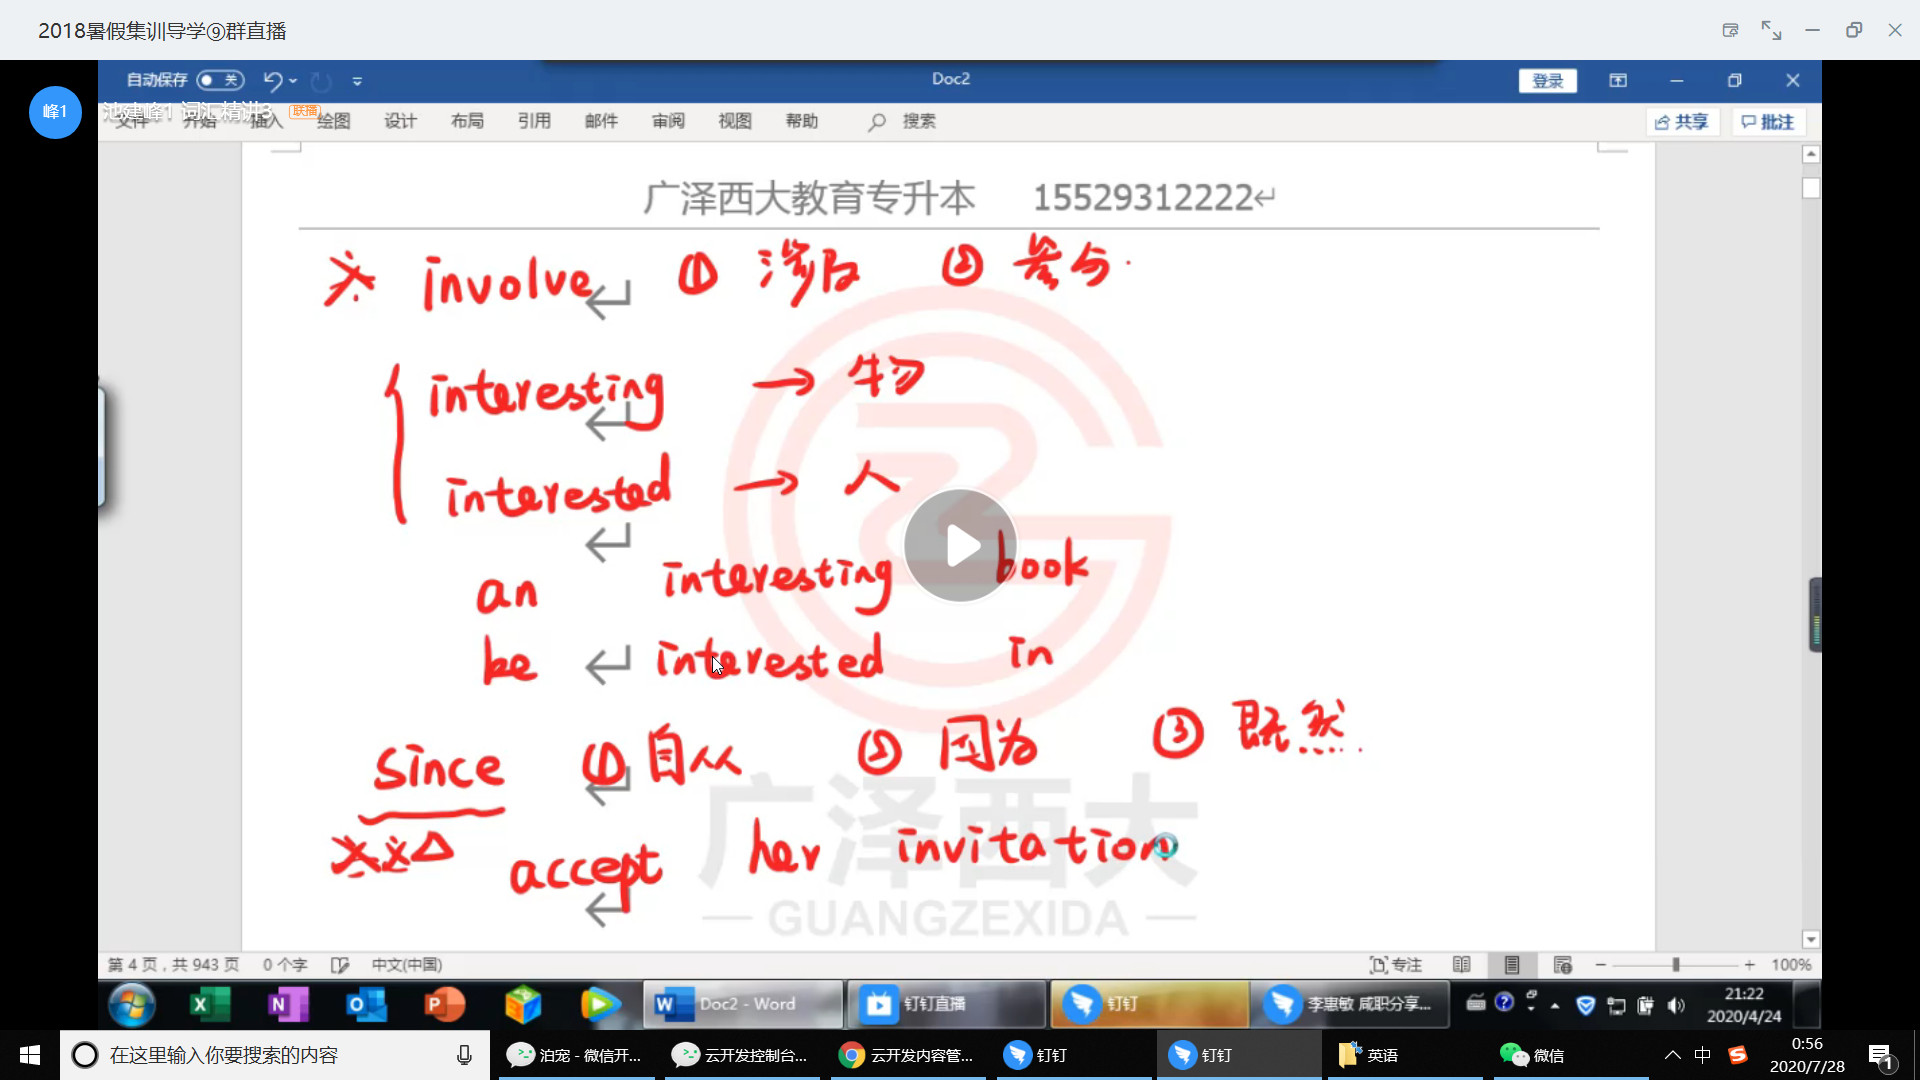 2018暑假集训导学⑨群直播
自动保存 关 Doc2 登录
峰1 池建峰1 词汇精讲3 联播
文件 开始 插入 绘图 设计 布局 引用 邮件 审阅 视图 帮助 搜索 共享 批注
广泽西大教育专升本 15529312222
※ involve ① 涉及 ② 参与.
interesting → 物
interested → 人
an interesting book
be interested in
since ① 自从 ② 因为 ③ 既然.
※※△ accept her invitation
广泽西大
— GUANGZEXIDA —
第 4 页，共 943 页 0 个字 中文(中国) 专注 100%
Doc2 - Word 钉钉直播 钉钉 李惠敏 咸职分享... 21:22
2020/4/24
在这里输入你要搜索的内容 泊宠 - 微信开... 云开发控制台... 云开发内容管... 钉钉 钉钉 英语 微信 中 0:56
2020/7/28 1